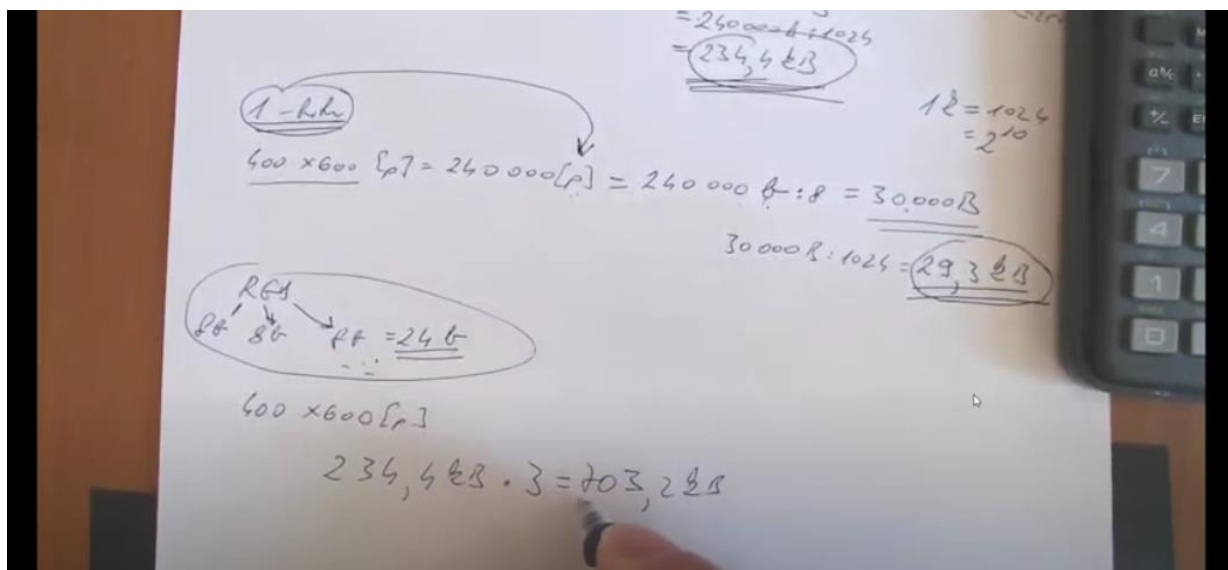 = 240000 b : 1024
= 234,4 kB
1 k = 1024
= 2^10
1 - bit
400 x 600 [p] = 240 000 [p] = 240 000 b : 8 = 30.000 B
30 000 B : 1024 = 29,3 kB
RGB
8b 8b 8b = 24 b
400 x 600 [p]
234,4 kB . 3 = 703,2 kB
7
4
1
0